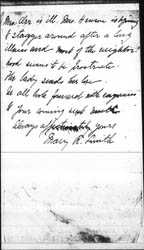 Mrs. Orr is ill. Mrs. is trying
to stagger around after a long
illness and most of the neighbor
hood seems to be prostrate.
The lady sends her love.
We all look forward with eagerness
to your coming
Always affectionately yours
Mary R. Smith